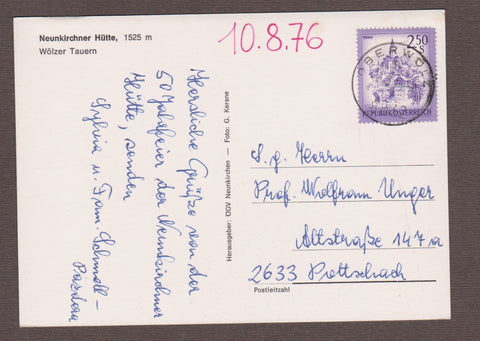 Neunkirchner Hütte, 1525 m
Wölzer Tauern
10.8.76
Herzliche Grüße von der
50 Jahrfeier der Neunkirchner
Hütte, senden
Sylvia u. Fam. Schmoll-
Pazdera
Herausgeber: ÖGV Neunkirchen — Foto: G. Kersne
2.50
S
REPUBLIK ÖSTERREICH
OBERWÖLZ
S. g. Herrn
Prof. Wolfram Unger
Altstraße 147a
2633 Pottschach
Postleitzahl